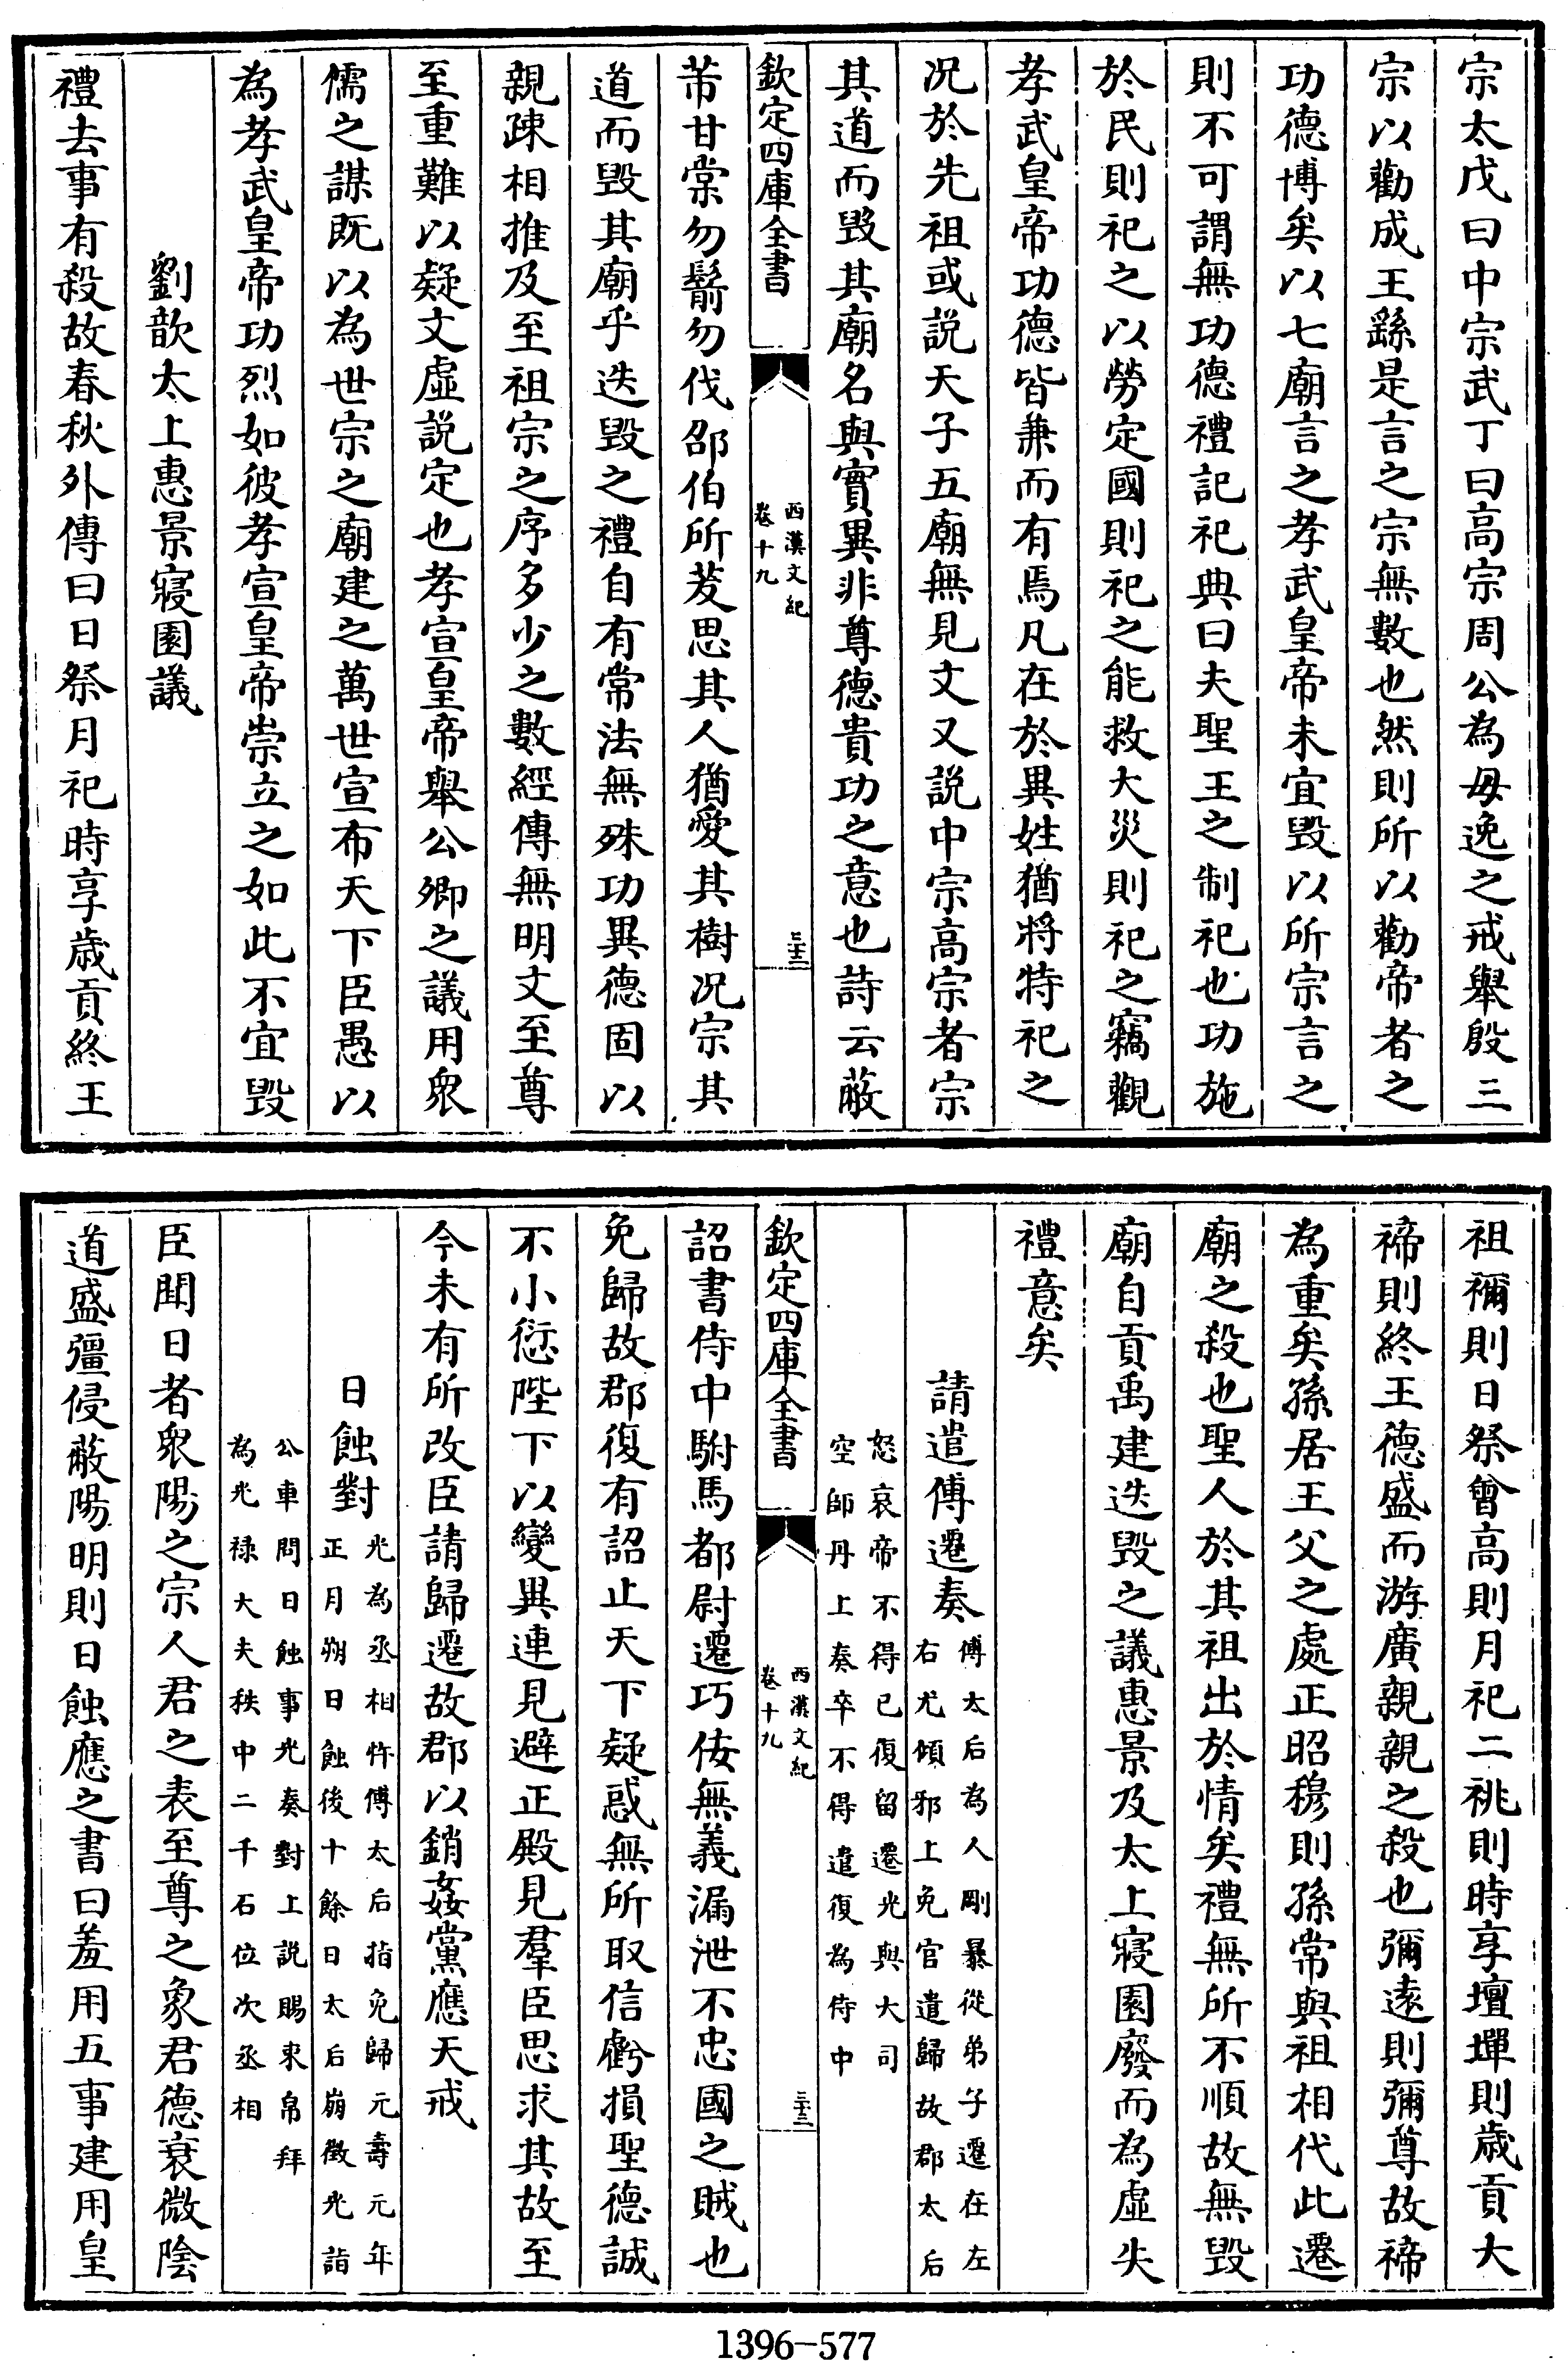 宗太戊曰中宗武丁曰高宗周公為毋逸之戒舉殷三
宗以勸成王繇是言之宗無數也然則所以勸帝者之
功德博矣以七廟言之孝武皇帝未宜毀以所宗言之
則不可謂無功德禮記祀典曰夫聖王之制祀也功施
於民則祀之以勞定國則祀之能救大災則祀之竊觀
孝武皇帝功德皆兼而有焉凡在於異姓猶將特祀之
况於先祖或説天子五廟無見文又説中宗高宗者宗
其道而毀其廟名與實異非尊德貴功之意也詩云蔽
欽定四庫全書
西漢文紀
卷十九
三十二
芾甘棠勿鬋勿伐邵伯所茇思其人猶愛其樹况宗其
道而毀其廟乎迭毀之禮自有常法無殊功異德固以
親疎相推及至祖宗之序多少之數經傳無明文至尊
至重難以疑文虛説定也孝宣皇帝舉公卿之議用衆
儒之謀既以為世宗之廟建之萬世宣布天下臣愚以
為孝武皇帝功烈如彼孝宣皇帝崇立之如此不宜毀
劉歆太上惠景寢園議
禮去事有殺故春秋外傳曰日祭月祀時享歲貢終王
祖禰則日祭曾高則月祀二祧則時享壇墠則歲貢大
禘則終王德盛而游廣親親之殺也彌遠則彌尊故禘
為重矣孫居王父之處正昭穆則孫常與祖相代此遷
廟之殺也聖人於其祖出於情矣禮無所不順故無毀
廟自貢禹建迭毀之議惠景及太上寢園廢而為虛失
禮意矣
請遣傅遷奏
傅太后為人剛暴從弟子遷在左
右尤傾邪上免官遣歸故郡太后
怒哀帝不得已復留遷光與大司
空師丹上奏卒不得遣復為侍中
欽定四庫全書
西漢文紀
卷十九
三十三
詔書侍中駙馬都尉遷巧佞無義漏泄不忠國之賊也
免歸故郡復有詔止天下疑惑無所取信虧損聖德誠
不小愆陛下以變異連見避正殿見羣臣思求其故至
今未有所改臣請歸遷故郡以銷姦黨應天戒
日蝕對
光為丞相忤傅太后指免歸元壽元年
正月朔日蝕後十餘日太后崩徵光詣
公車問日蝕事光奏對上説賜束帛拜
為光禄大夫秩中二千石位次丞相
臣聞日者衆陽之宗人君之表至尊之象君德衰微陰
道盛彊侵蔽陽明則日蝕應之書曰羞用五事建用皇
1396-577